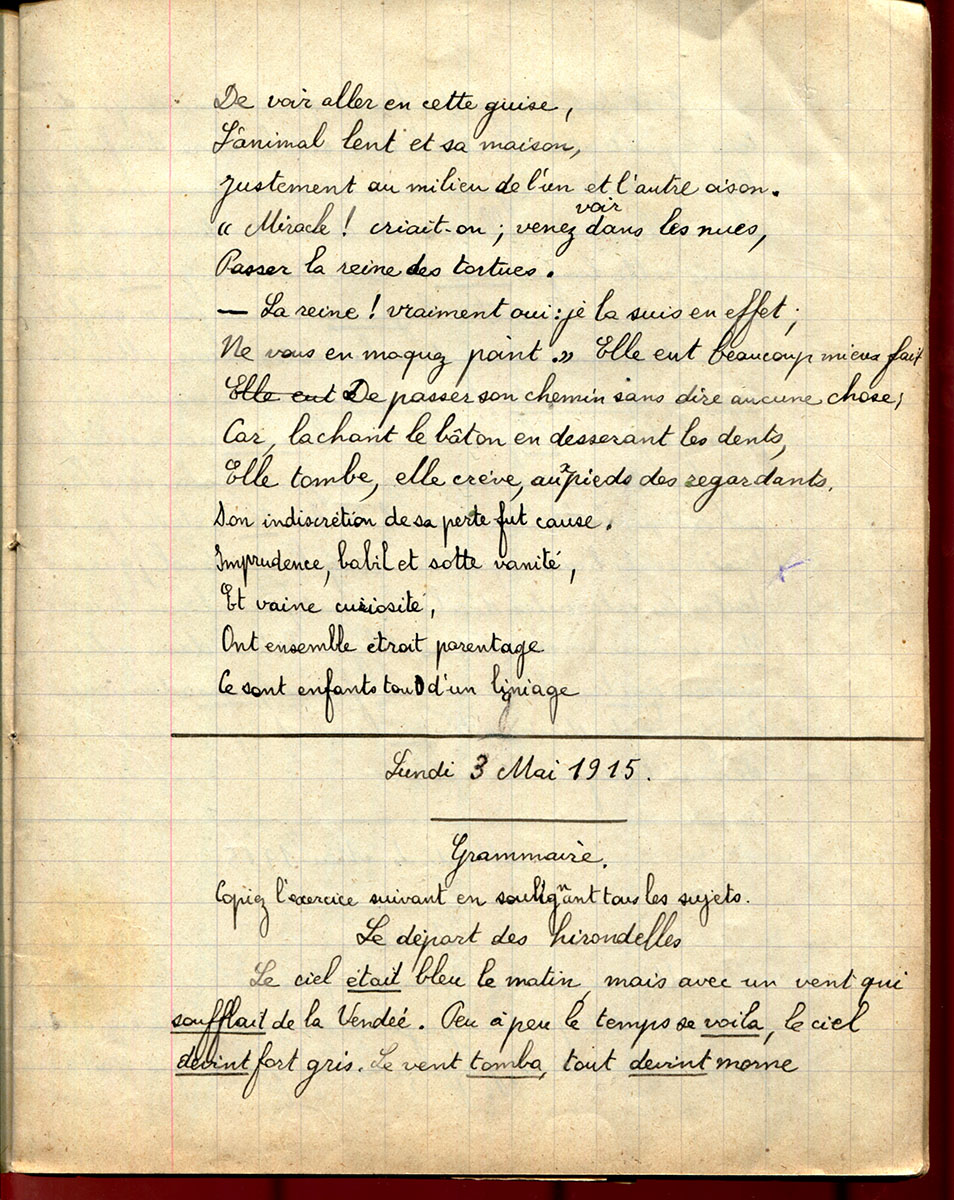 De voir aller en cette guise,
L'animal lent et sa maison,
Justement au milieu de l'un et l'autre oison.
voir
« Miracle ! criait-on ; venez dans les nues,
Passer la reine des tortues.
— La reine ! vraiment oui : je la suis en effet ;
Ne vous en moquez point. » Elle eut beaucoup mieux fait
Elle eut De passer son chemin sans dire aucune chose ;
Car, lachant le bâton en desserant les dents,
Elle tombe, elle crève, aux pieds des regardants.
Son indiscrétion de sa perte fut cause.
Imprudence, babil et sotte vanité,
Et vaine curiosité,
Ont ensemble étroit parentage
Ce sont enfants tous d'un ligniage
Lundi 3 Mai 1915.
Grammaire.
Copiez l'exercice suivant en soulignant tous les sujets.
Le départ des hirondelles
Le ciel était bleu le matin, mais avec un vent qui
soufflait de la Vendée. Peu à peu le temps se voila, le ciel
devint fort gris. Le vent tomba, tout devint morne